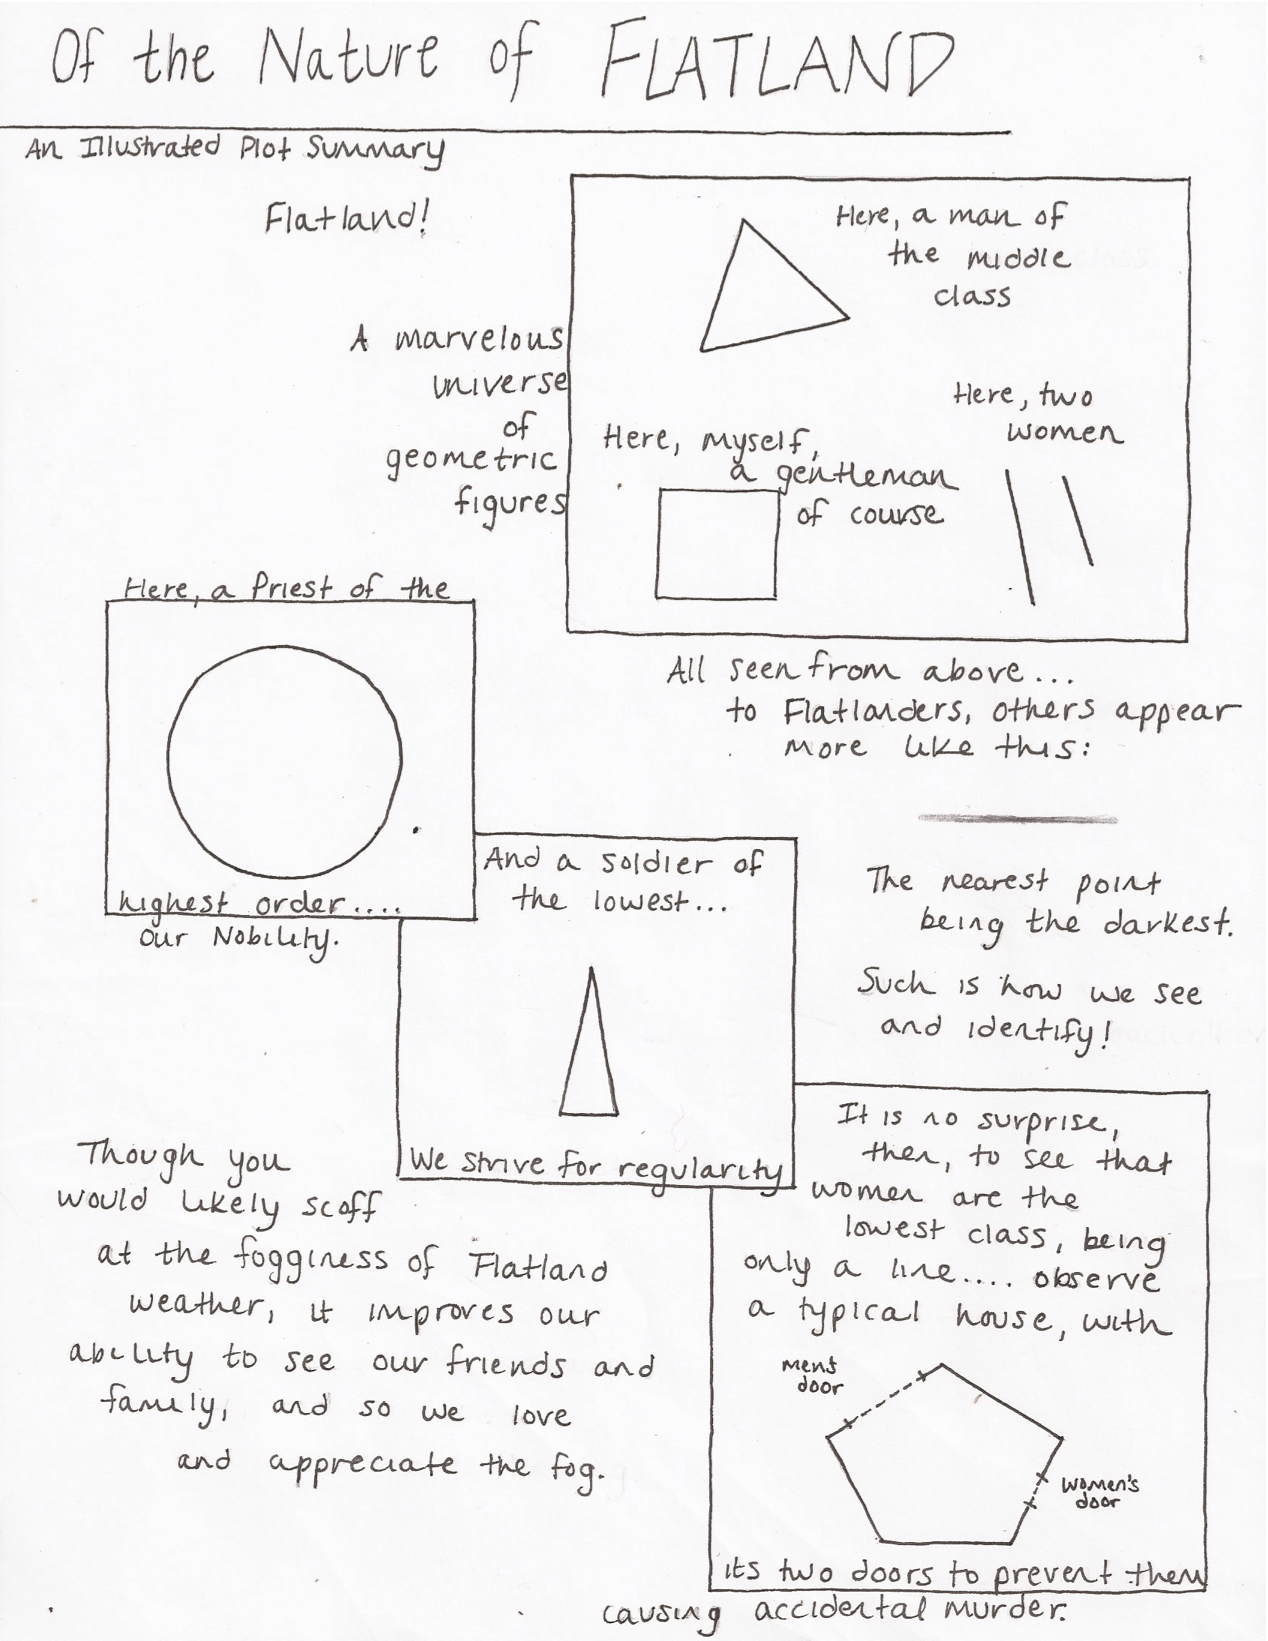 Of the Nature of FLATLAND
An Illustrated Plot Summary
Flatland!
A marvelous
universe
of
geometric
figures
Here, a man of
the middle
class
Here, two
women
Here, myself,
a gentleman
of course
All seen from above...
to Flatlanders, others appear
more like this:
The nearest point
being the darkest.
Such is how we see
and identify!
Here, a Priest of the
highest order....
our Nobility.
And a soldier of
the lowest...
We strive for regularity
Though you
would likely scoff
at the fogginess of Flatland
weather, it improves our
ability to see our friends and
family, and so we love
and appreciate the fog.
It is no surprise,
then, to see that
women are the
lowest class, being
only a line.... observe
a typical house, with
men's
door
women's
door
its two doors to prevent them
causing accidental murder.